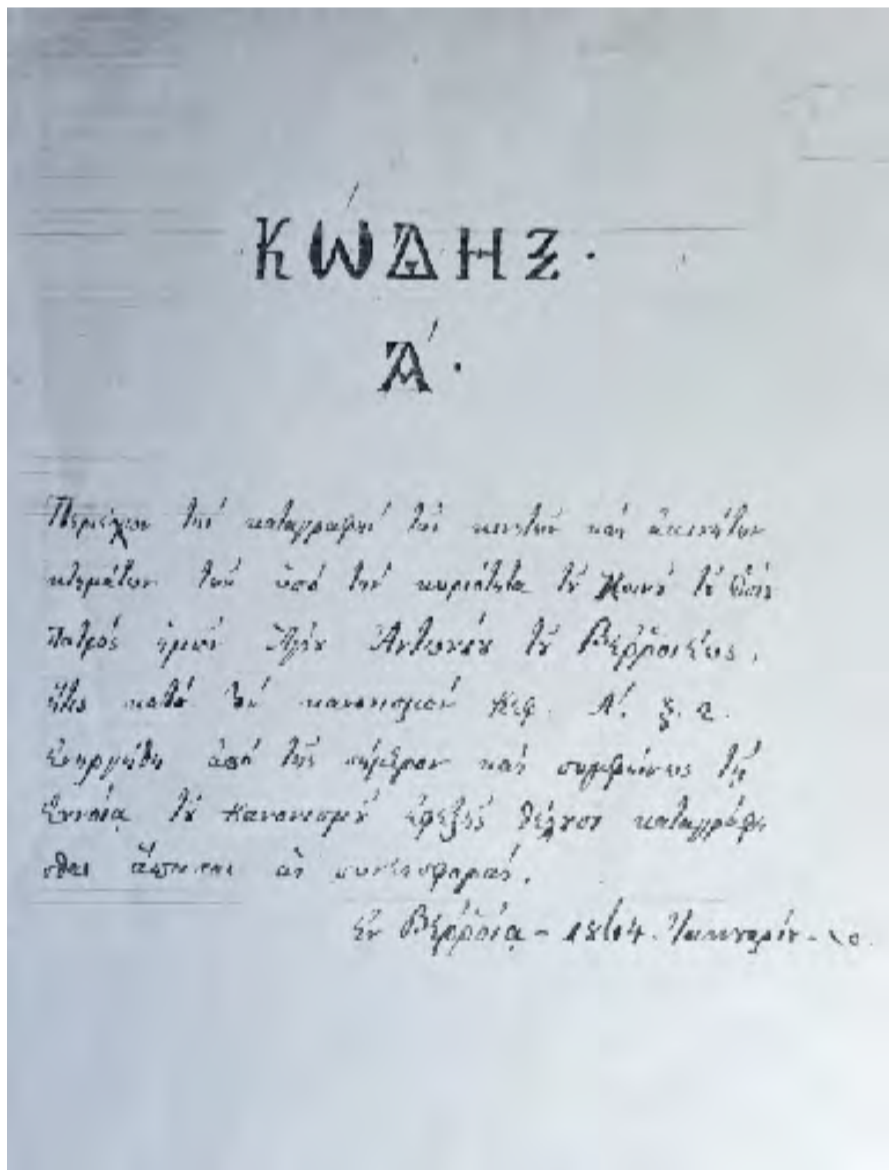 ΚΏΔΗΞ.
Α'.
Περιέχων τὴν καταγραφὴν τῶν κινητῶν καὶ ἀκινήτων
κτημάτων τῶν ὑπὸ τὴν κυριότητα τοῦ Κοινοῦ τοῦ
Πατρὸς ἡμῶν Ἁγίου Ἀντωνίου τοῦ Βεῤῥοιέως,
ἥτις κατὰ τὸν κανονισμὸν Κεφ. Α'. ξ. 2.
ἐνηργήθη ἀπὸ τῆς σήμερον καὶ συμφώνως τῇ
ἐννοίᾳ τοῦ Κανονισμοῦ ἐφεξῆς θέλουσι καταγράφε
σθαι ἅπασαι αἱ συνεισφοραί.
Ἐν Βεῤῥοίᾳ - 1864. Ἰαννουαρίου -